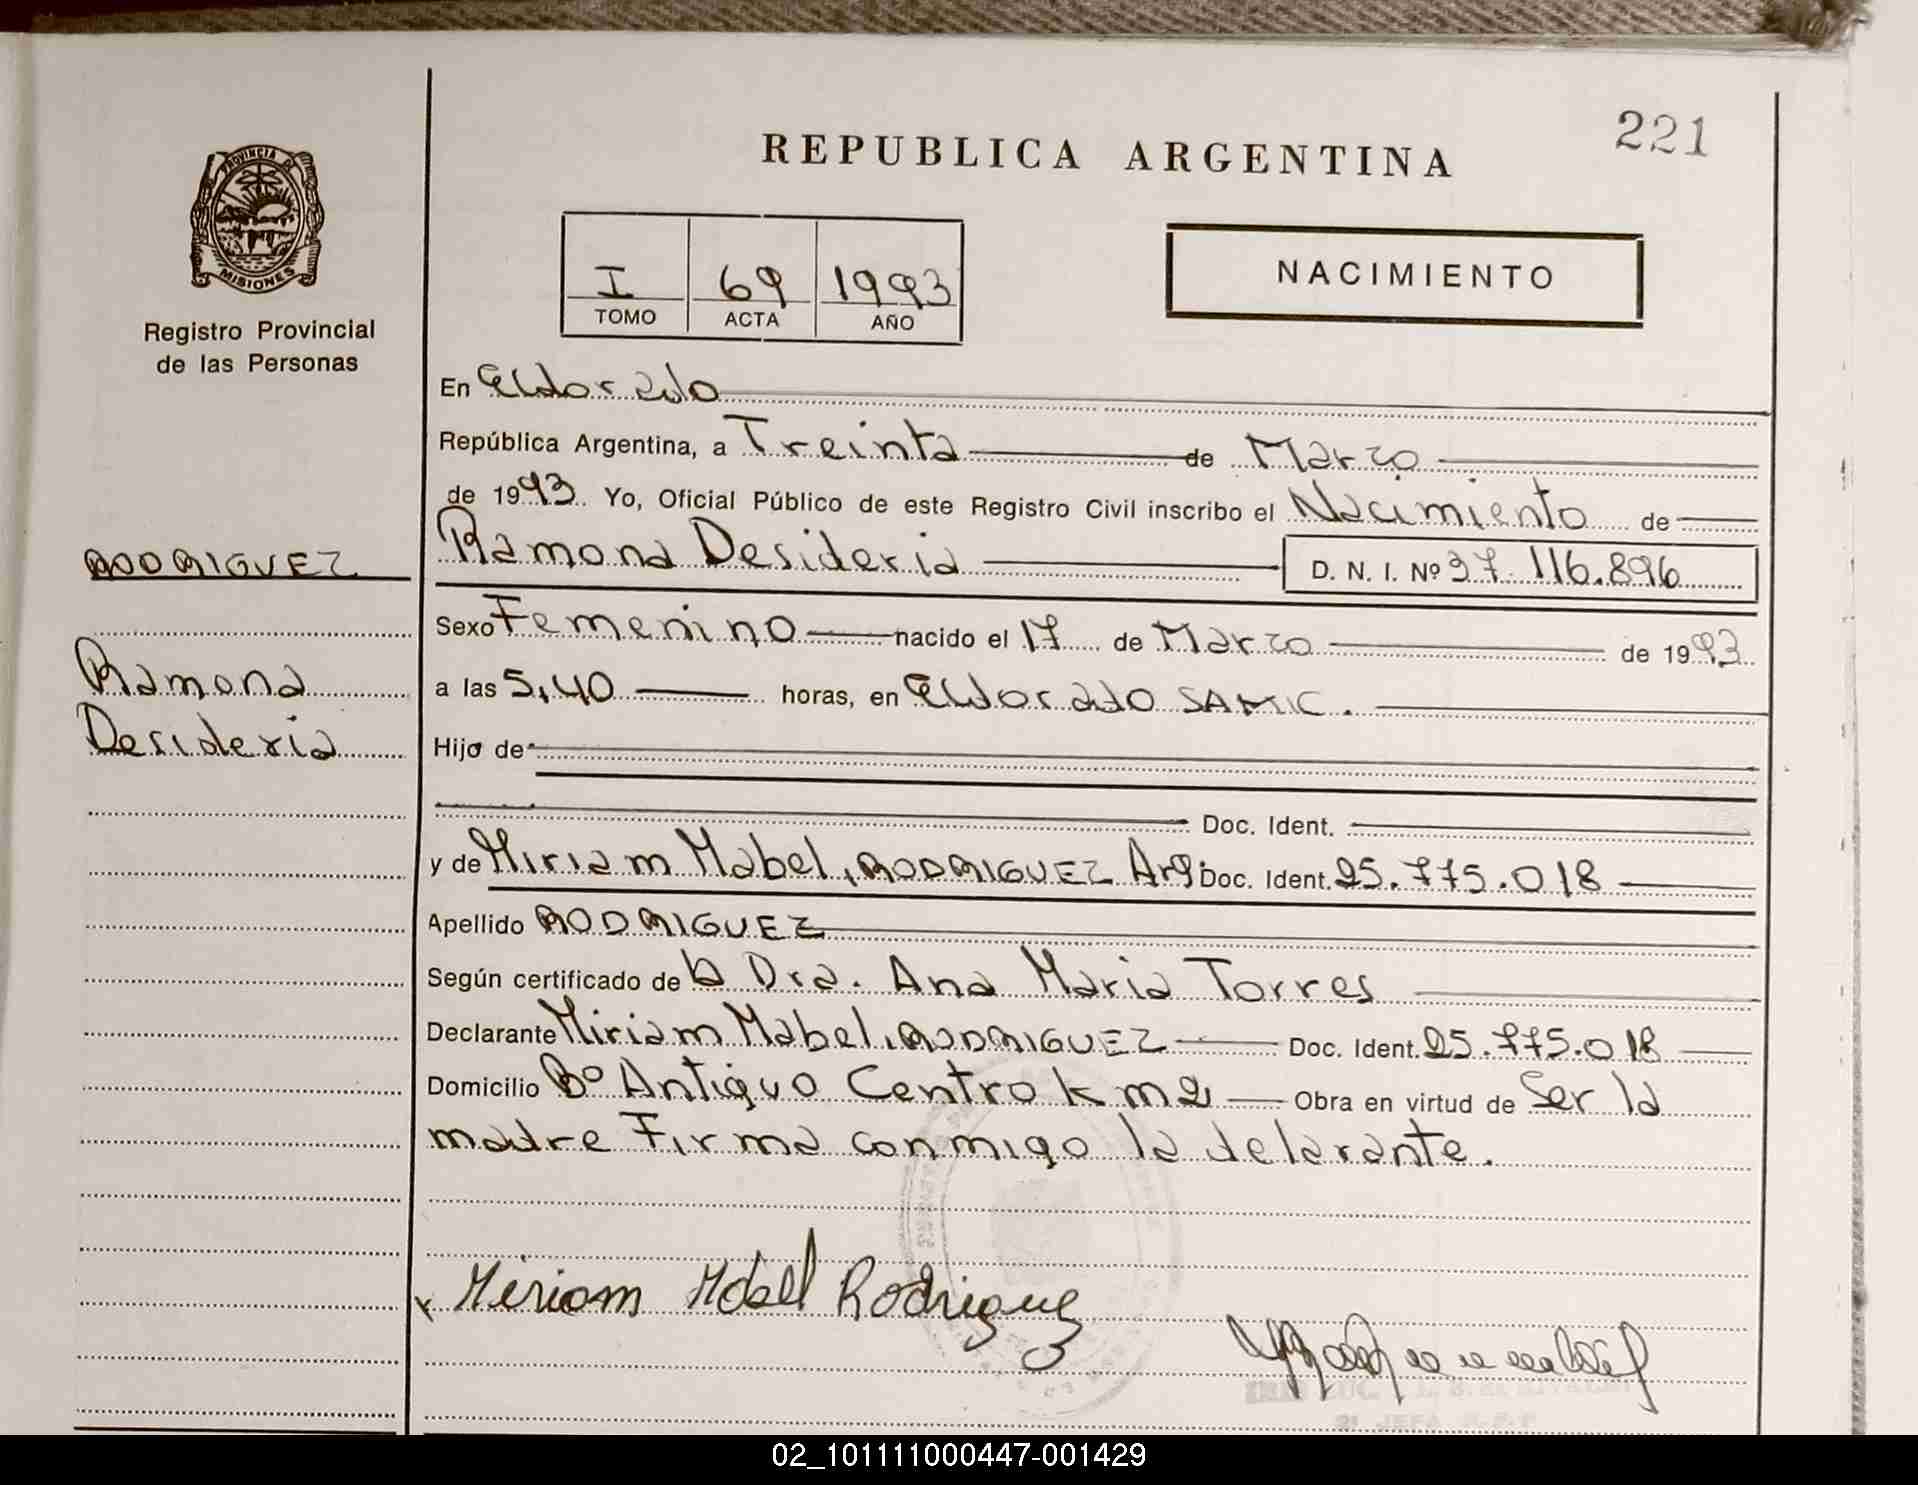 221
REPUBLICA ARGENTINA
PROVINCIA DE
MISIONES
Registro Provincial
de las Personas
I 69 1993
TOMO ACTA AÑO
NACIMIENTO
En Eldorado
República Argentina, a Treinta de Marzo
de 1993. Yo, Oficial Público de este Registro Civil inscribo el Nacimiento de
Ramona Desideria D. N. I. Nº 37.116.896
RODRIGUEZ
Ramona
Desideria
Sexo Femenino nacido el 17 de Marzo de 1993
a las 5,40 horas, en Eldorado SAMIC.
Hijo de
Doc. Ident.
y de Miriam Mabel, RODRIGUEZ Arg. Doc. Ident. 25.775.018
Apellido RODRIGUEZ
Según certificado de la Dra. Ana Maria Torres
Declarante Miriam Mabel, RODRIGUEZ Doc. Ident. 25.775.018
Domicilio Bº Antiguo Centro km 2 Obra en virtud de Ser la
madre Firma conmigo la delarante.
Miriam Mabel Rodriguez
02_101111000447-001429